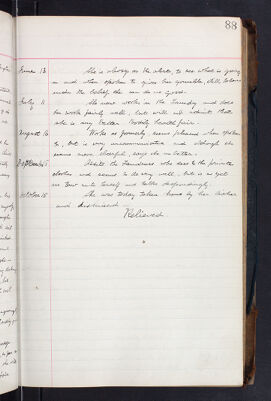 88
June 13 She is always on the alert to see what is going
on and when spoken to gives her grumble, still labours
under the belief she can do no good.
July 11 She now works in the Laundry and does
her work fairly well, but will not admit that
she is any better. Bodily health fair.
August 16 Works as formerly seems pleased when spoken
to, but is very uncommunicative and although she
seems more cheerful, says she is no better.
September 5 Assists the Laundress who does the private
clothes and seems to do very well, but is as yet
in low with herself and talks despondingly.
October 15 She was today taken home by her brother
and discharged
Relieved